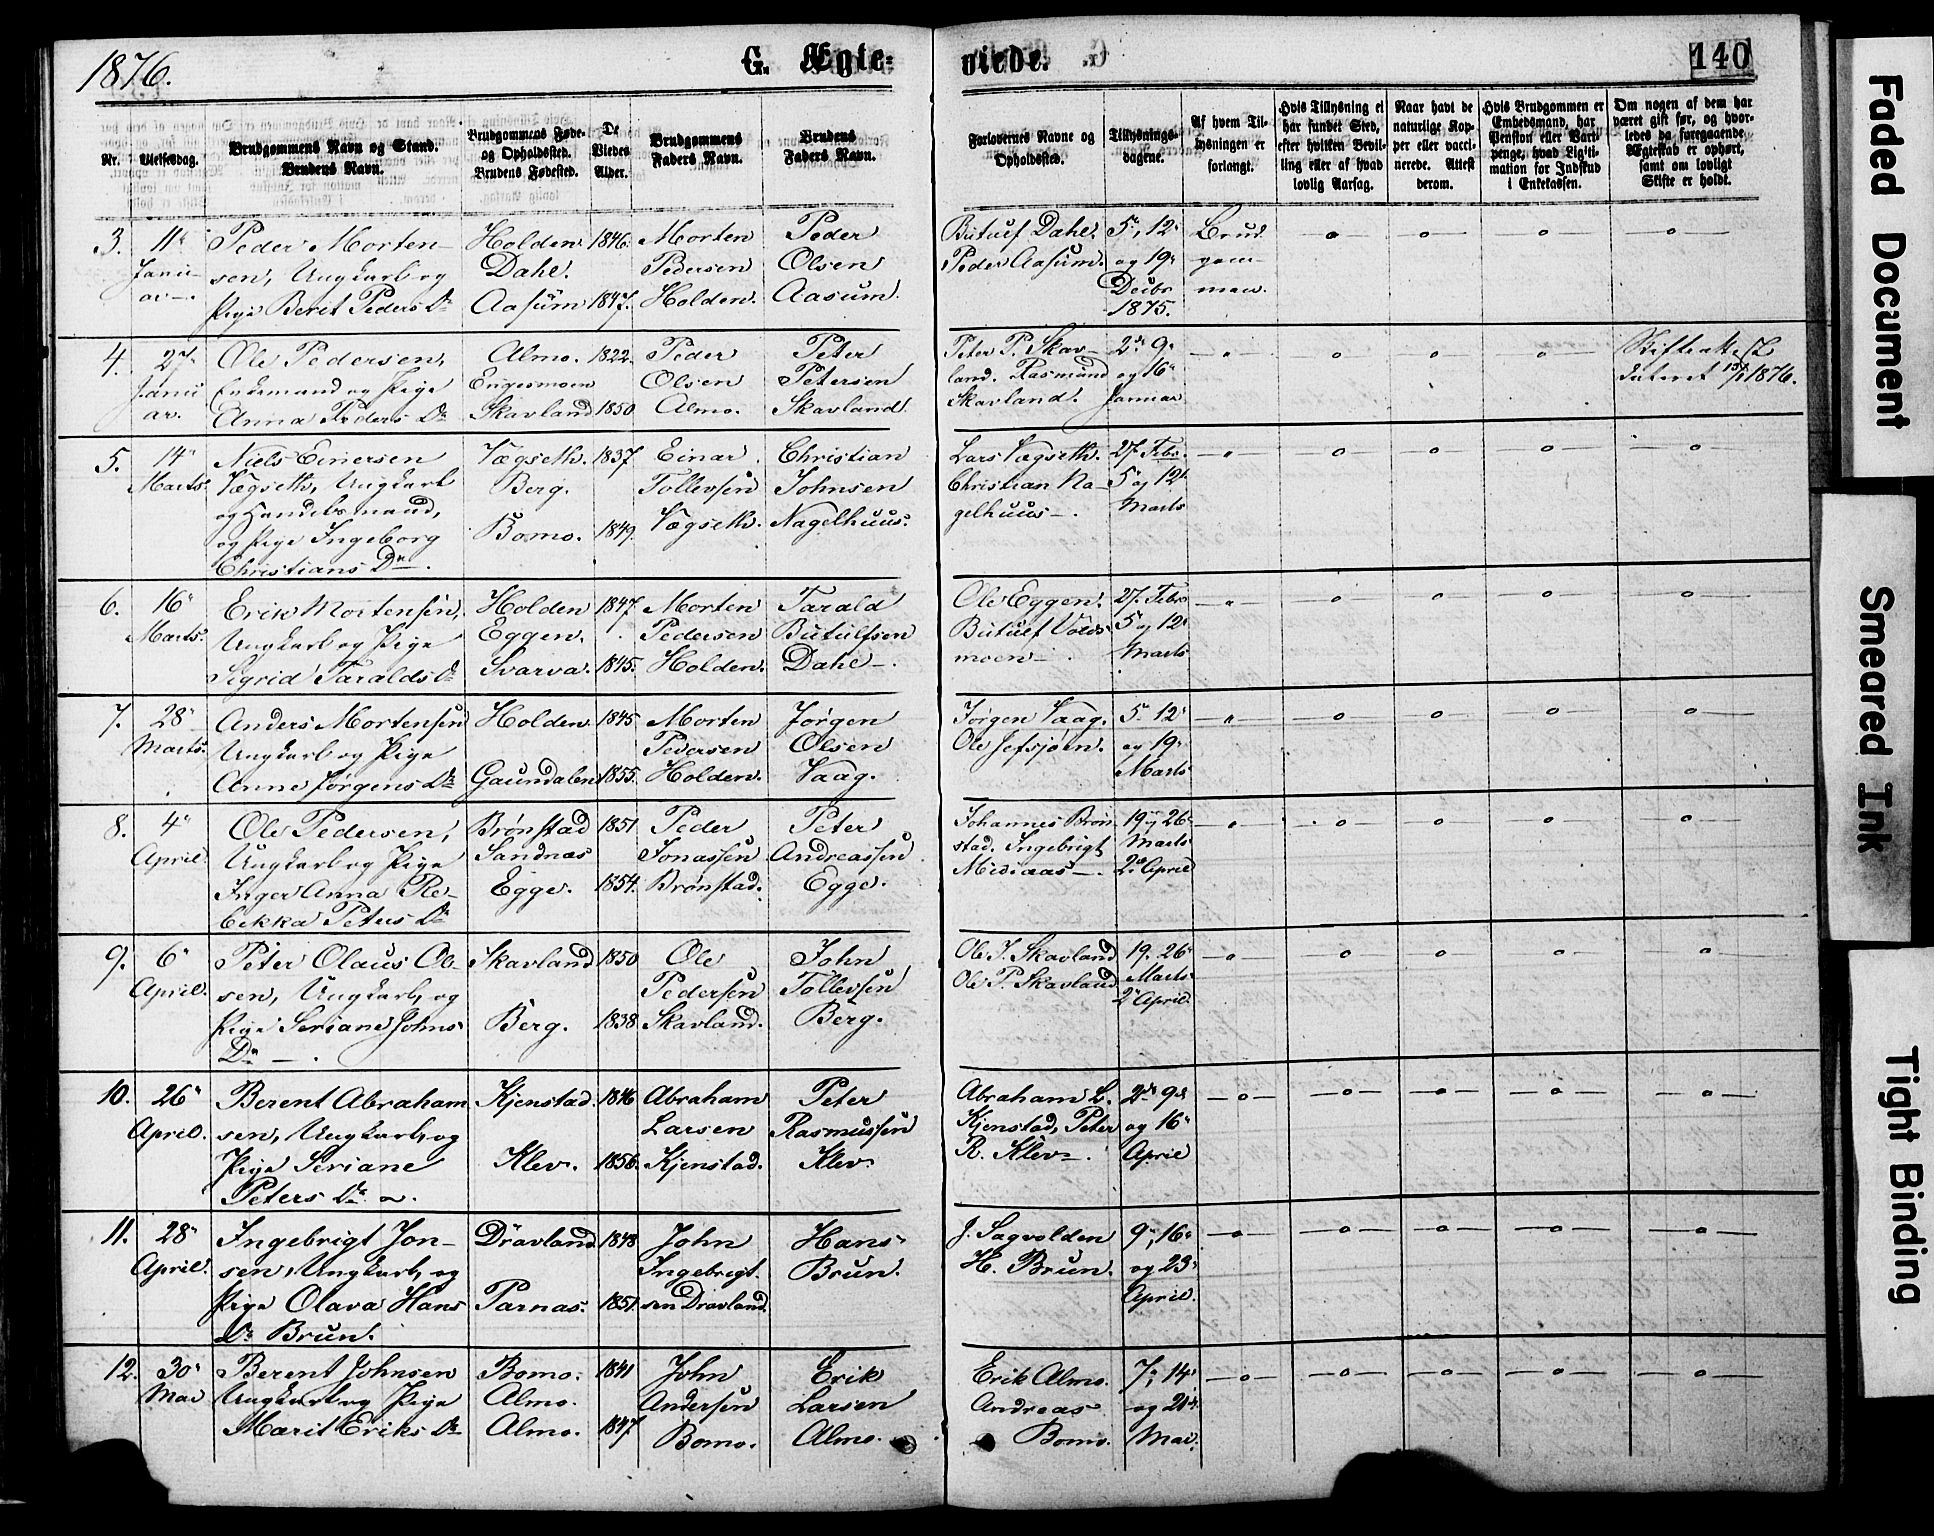 1876.
G. Ægte-
viede.
140
Nr.
Vielsesdag.
Brudgommens Navn og Stand.
Brudens Navn.
Brudgommens Føde-
og Opholdssted.
Brudens Fødested.
De
Viedes
Alder.
Brudgommens
Faders Navn.
Brudens
Faders Navn.
Forlovernes Navne og
Opholdssted.
Tillysnings-
dagene.
Af hvem Til-
lysningen er
forlangt.
Hvis Tillysning ei
har fundet Sted,
efter hvilken Bevil-
ling eller af hvad
lovlig Aarsag.
Naar havt de
naturlige Kop-
per eller vacci-
nerede. Attest
derom.
Hvis Brudgommen er
Embedsmand, har
Pension eller Vart-
penge, hvad Ligiti-
mation for Indskud
i Enkekassen.
Om nogen af dem har
været gift før, og hvor-
ledes da foregaaende
Ægteskab er ophørt,
samt om lovligt
Skifte er holdt.
3. 11" Peder Morten- Holden 1846. Morten Peder Butulf Dahl. 5", 12" Brud
Janu- sen, Ungkarl og Dahl. Pedersen Olsen Peder Aasum. og 19" gom-
ar-. Pige Berit Peders Dr Aasum 1847. Holden. Aasum. Decbr men.
1875.
4. 27" Ole Pedersen, Almo. 1822. Peder Peter Peter P. Skav- 2", 9" Skifteattest
Janu Enkemand og Pige Engesmoen Olsen Petersen land. Rasmund og 16" dateret 15/1 1876.
ar. Anna Peders Dr Skavland 1850 Almo. Skavland. Skavland. Januar
5. 14" Niels Einersen Vægseth. 1837. Einar Christian Lars Vægseth. 27 Febr.
Marts. Vægseth, Ungkarl Berg. Tollevsen Johnsen Christian Na- 5" og 12"
og Handelsmand, Bomo. 1849. Vægseth. Nagelhuus. gelhuus-. Marts
og Pige Ingeborg
Christians Dr.
6. 16" Erik Mortensen, Holden 1847. Morten Tarald Ole Eggen. 27. Febr
Marts. Ungkarl og Pige Eggen. Pedersen Butulfsen Butulf Volds 5 og 12"
Sigrid Taralds Dr Svarva. 1845. Holden. Dahl-. moen- Marts
7. 28" Anders Mortensen Holden 1845 Morten Jørgen Jørgen Vaag. 5" 12"
Marts. Ungkarl og Pige Pedersen Olsen Ole Gefsjøen. og 19"
Anne Jørgens Dr Gaundalen 1855. Holden. Vaag. Marts
8. 4" Ole Pedersen, Brønstad 1851 Peder Peter Johannes Brøn 19 og 26"
April Ungkarl og Pige Sandnæs Jonassen Andreassen stad. Ingebrigt Marts
Inger Anna Re- Egge. 1854. Brønstad. Egge. Midiaas-. 2" April
bekka Peters Dr
9. 6" Peter Olaus Ol- Skavland 1850 Ole John Ole J. Skavland 19. 26"
April. sen, Ungkarl, og Pedersen Tollevsen Ole P. Skavland Marts
Pige Seriane Johns Berg. 1838 Skavland. Berg. 2" April
Dr-.
10. 26" Berent Abraham Kjenstad. 1846 Abraham Peter Abraham L. 2", 9"
April. sen, Ungkarl, og Larsen Rasmussen Kjenstad, Peter og 16"
Pige Seriane Klev. 1856. Kjenstad. Klev. R. Klev-. April
Peters Dr.
11. 28" Ingebrigt Jon- Dravland 1848 John Hans J. Sagvolden 9", 16"
April. sen, Ungkarl, og Ingebrigt- Brun. H. Brun. og 23"
Pige Olava Hans Parnas. 1851. sen Dravland. April.
Dr Brun.
12. 30" Berent Johnsen Bomo. 1841 John Erik Erik Almo. 7", 14"
Mai Ungkarl og Pige Almo. Andersen Larsen Andreas og 21"
Marit Eriks Dr Almo. 1847. Bomo. Almo. Bomo. Mai.
Faded Document
Smeared Ink
Tight Binding